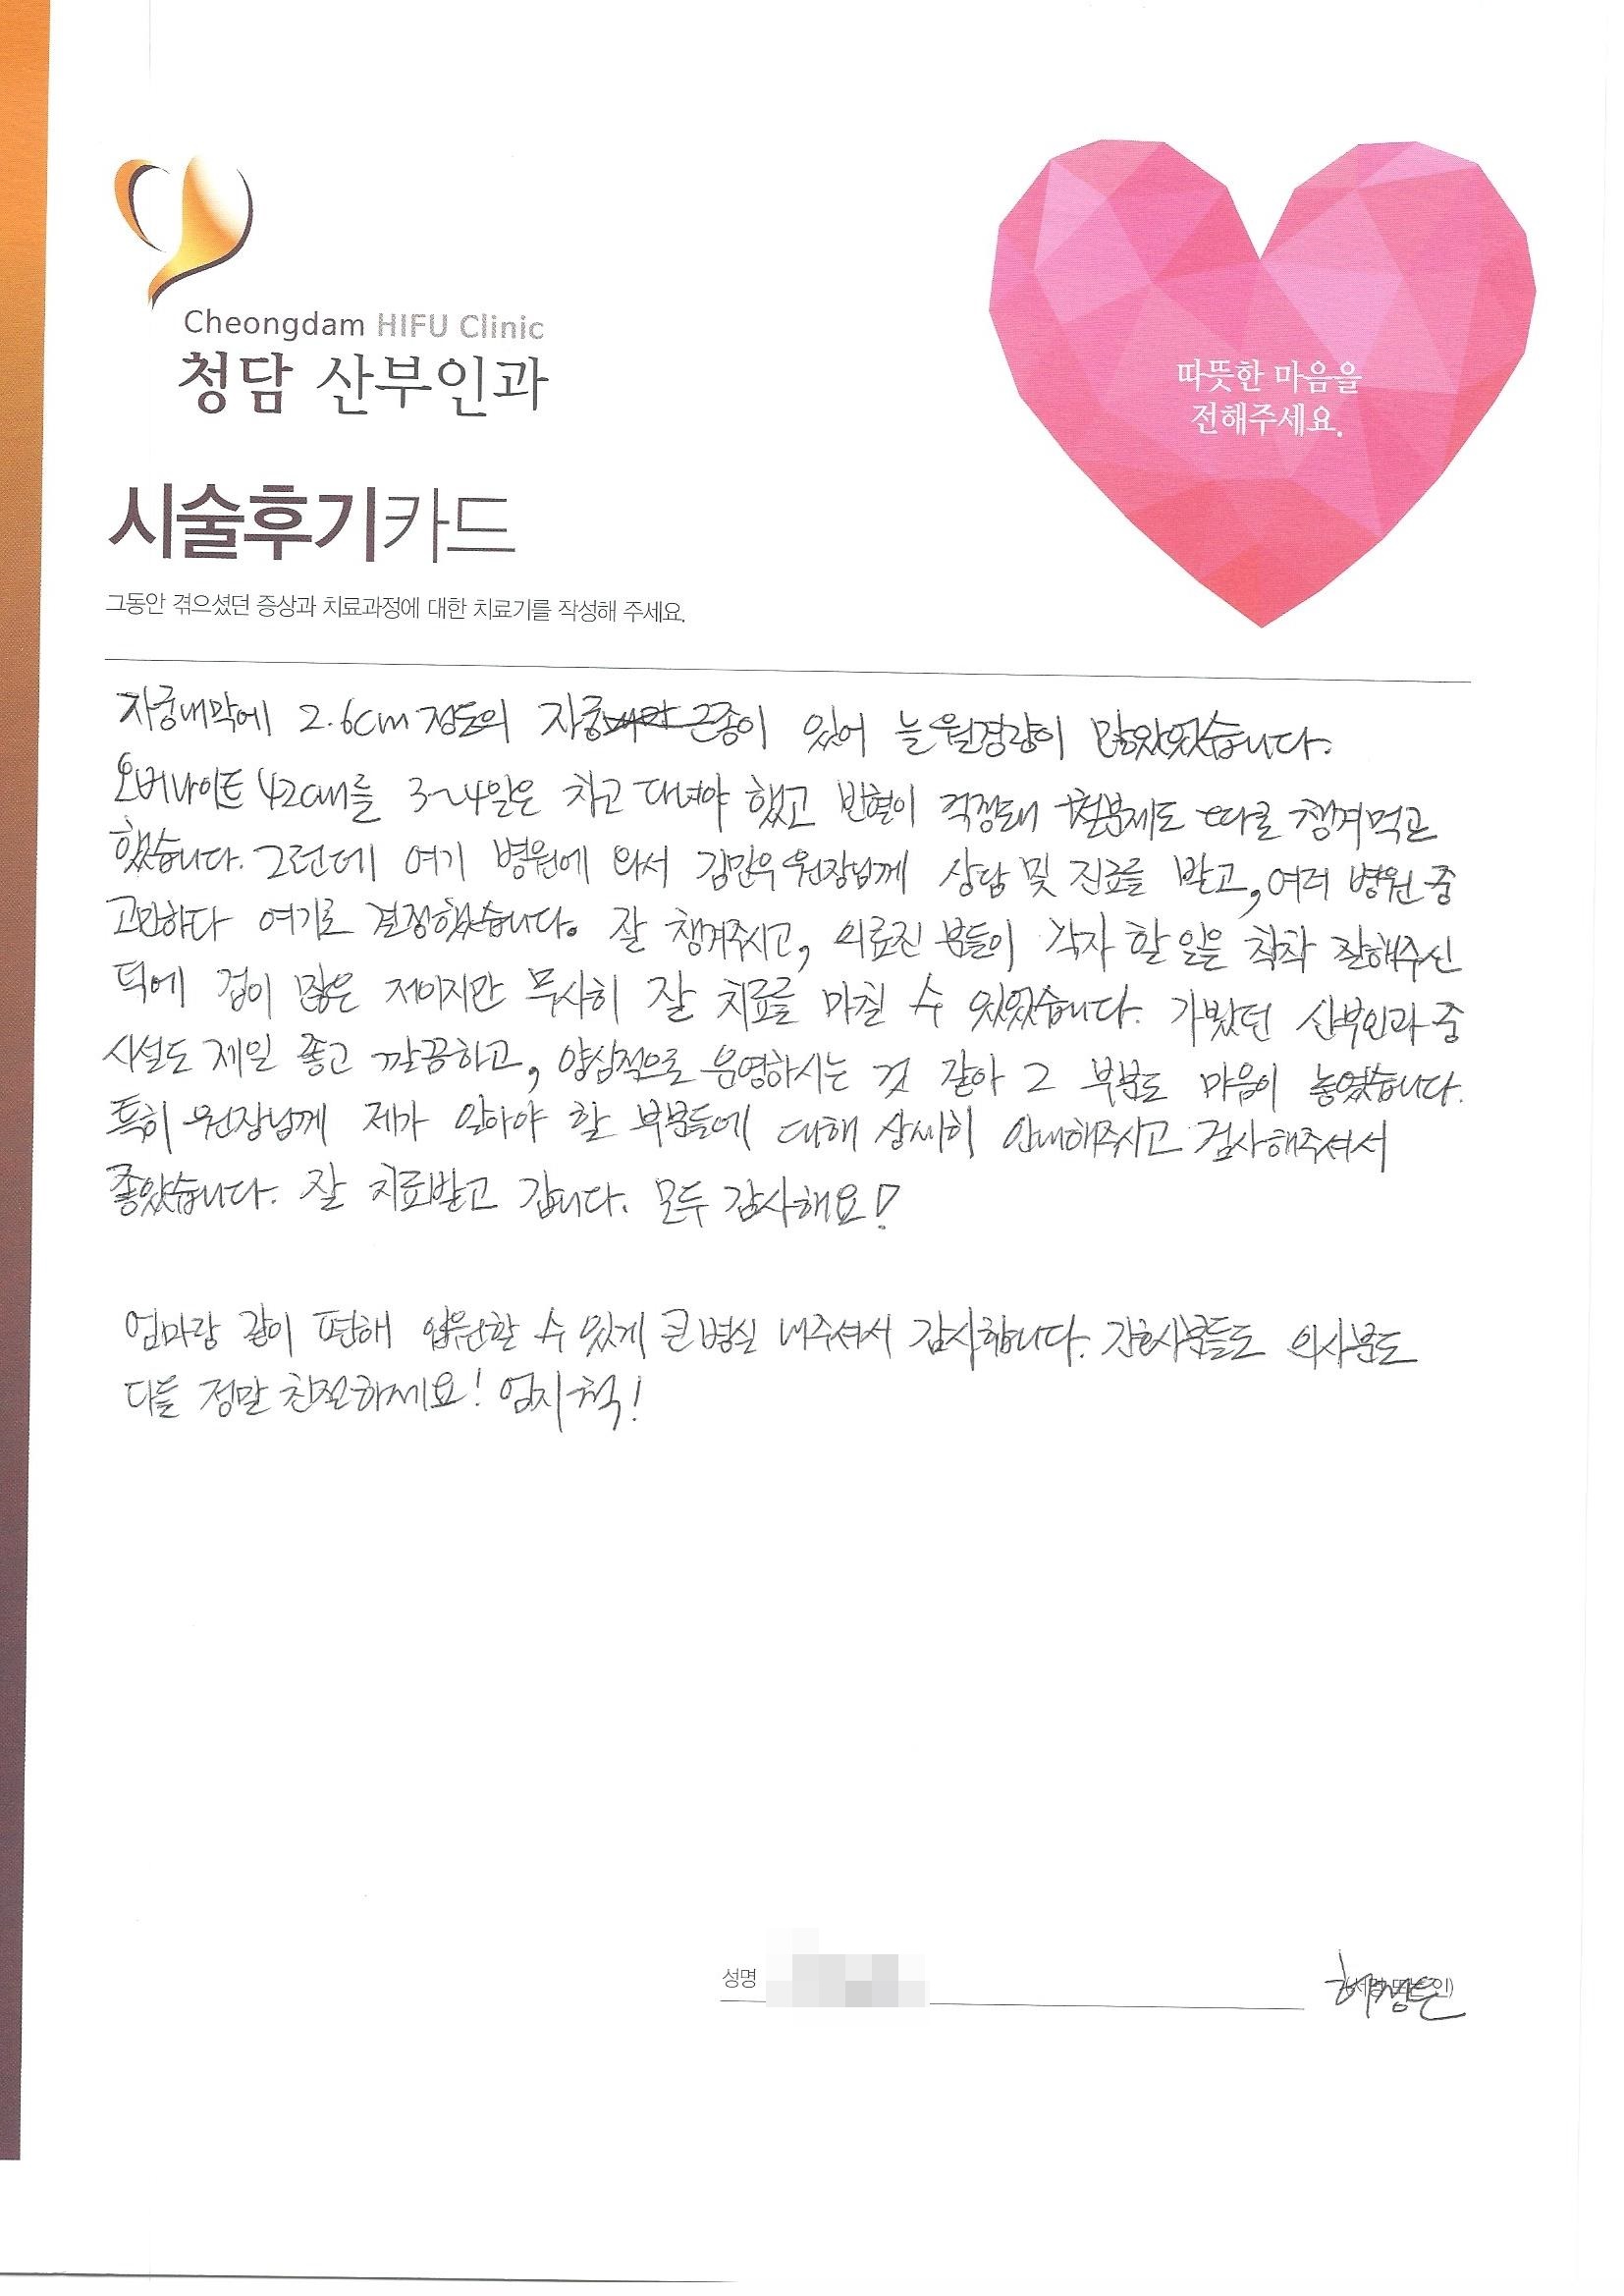 Cheongdam HIFU Clinic
청담 산부인과
따뜻한 마음을
전해주세요.
시술후기카드
그동안 겪으셨던 증상과 치료과정에 대한 치료기를 작성해 주세요.
자궁내막에 2.6cm 정도의 자궁근종이 있어 늘 월경량이 많았었습니다.
오버나이트 42cm를 3~4일은 차고 다녀야 했고 빈혈이 걱정돼 철분제도 따로 챙겨먹고
했습니다. 그런데 여기 병원에 와서 김민우 원장님께 상담 및 진료를 받고, 여러 병원 중
고민하다 여기로 결정했습니다. 잘 챙겨주시고, 의료진 분들이 각자 할 일을 착착 잘해주신
덕에 겁이 많은 저이지만 무사히 잘 치료를 마칠 수 있었습니다. 가봤던 산부인과 중
시설도 제일 좋고 깔끔하고, 양심적으로 운영하시는 것 같아 그 부분도 마음이 놓였습니다.
특히 원장님께 제가 알아야 할 부분들에 대해 상세히 안내해주시고 검사해주셔서
좋았습니다. 잘 치료받고 갑니다. 모두 감사해요!
엄마랑 같이 편해 입원할 수 있게 큰 병실 내주셔서 감사합니다. 간호사분들도 의사분도
다들 정말 친절하세요! 엄지척!
성명